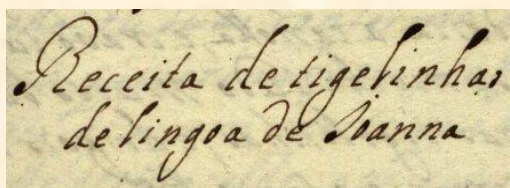 Receita de tigelinhas
de lingoa de Joanna